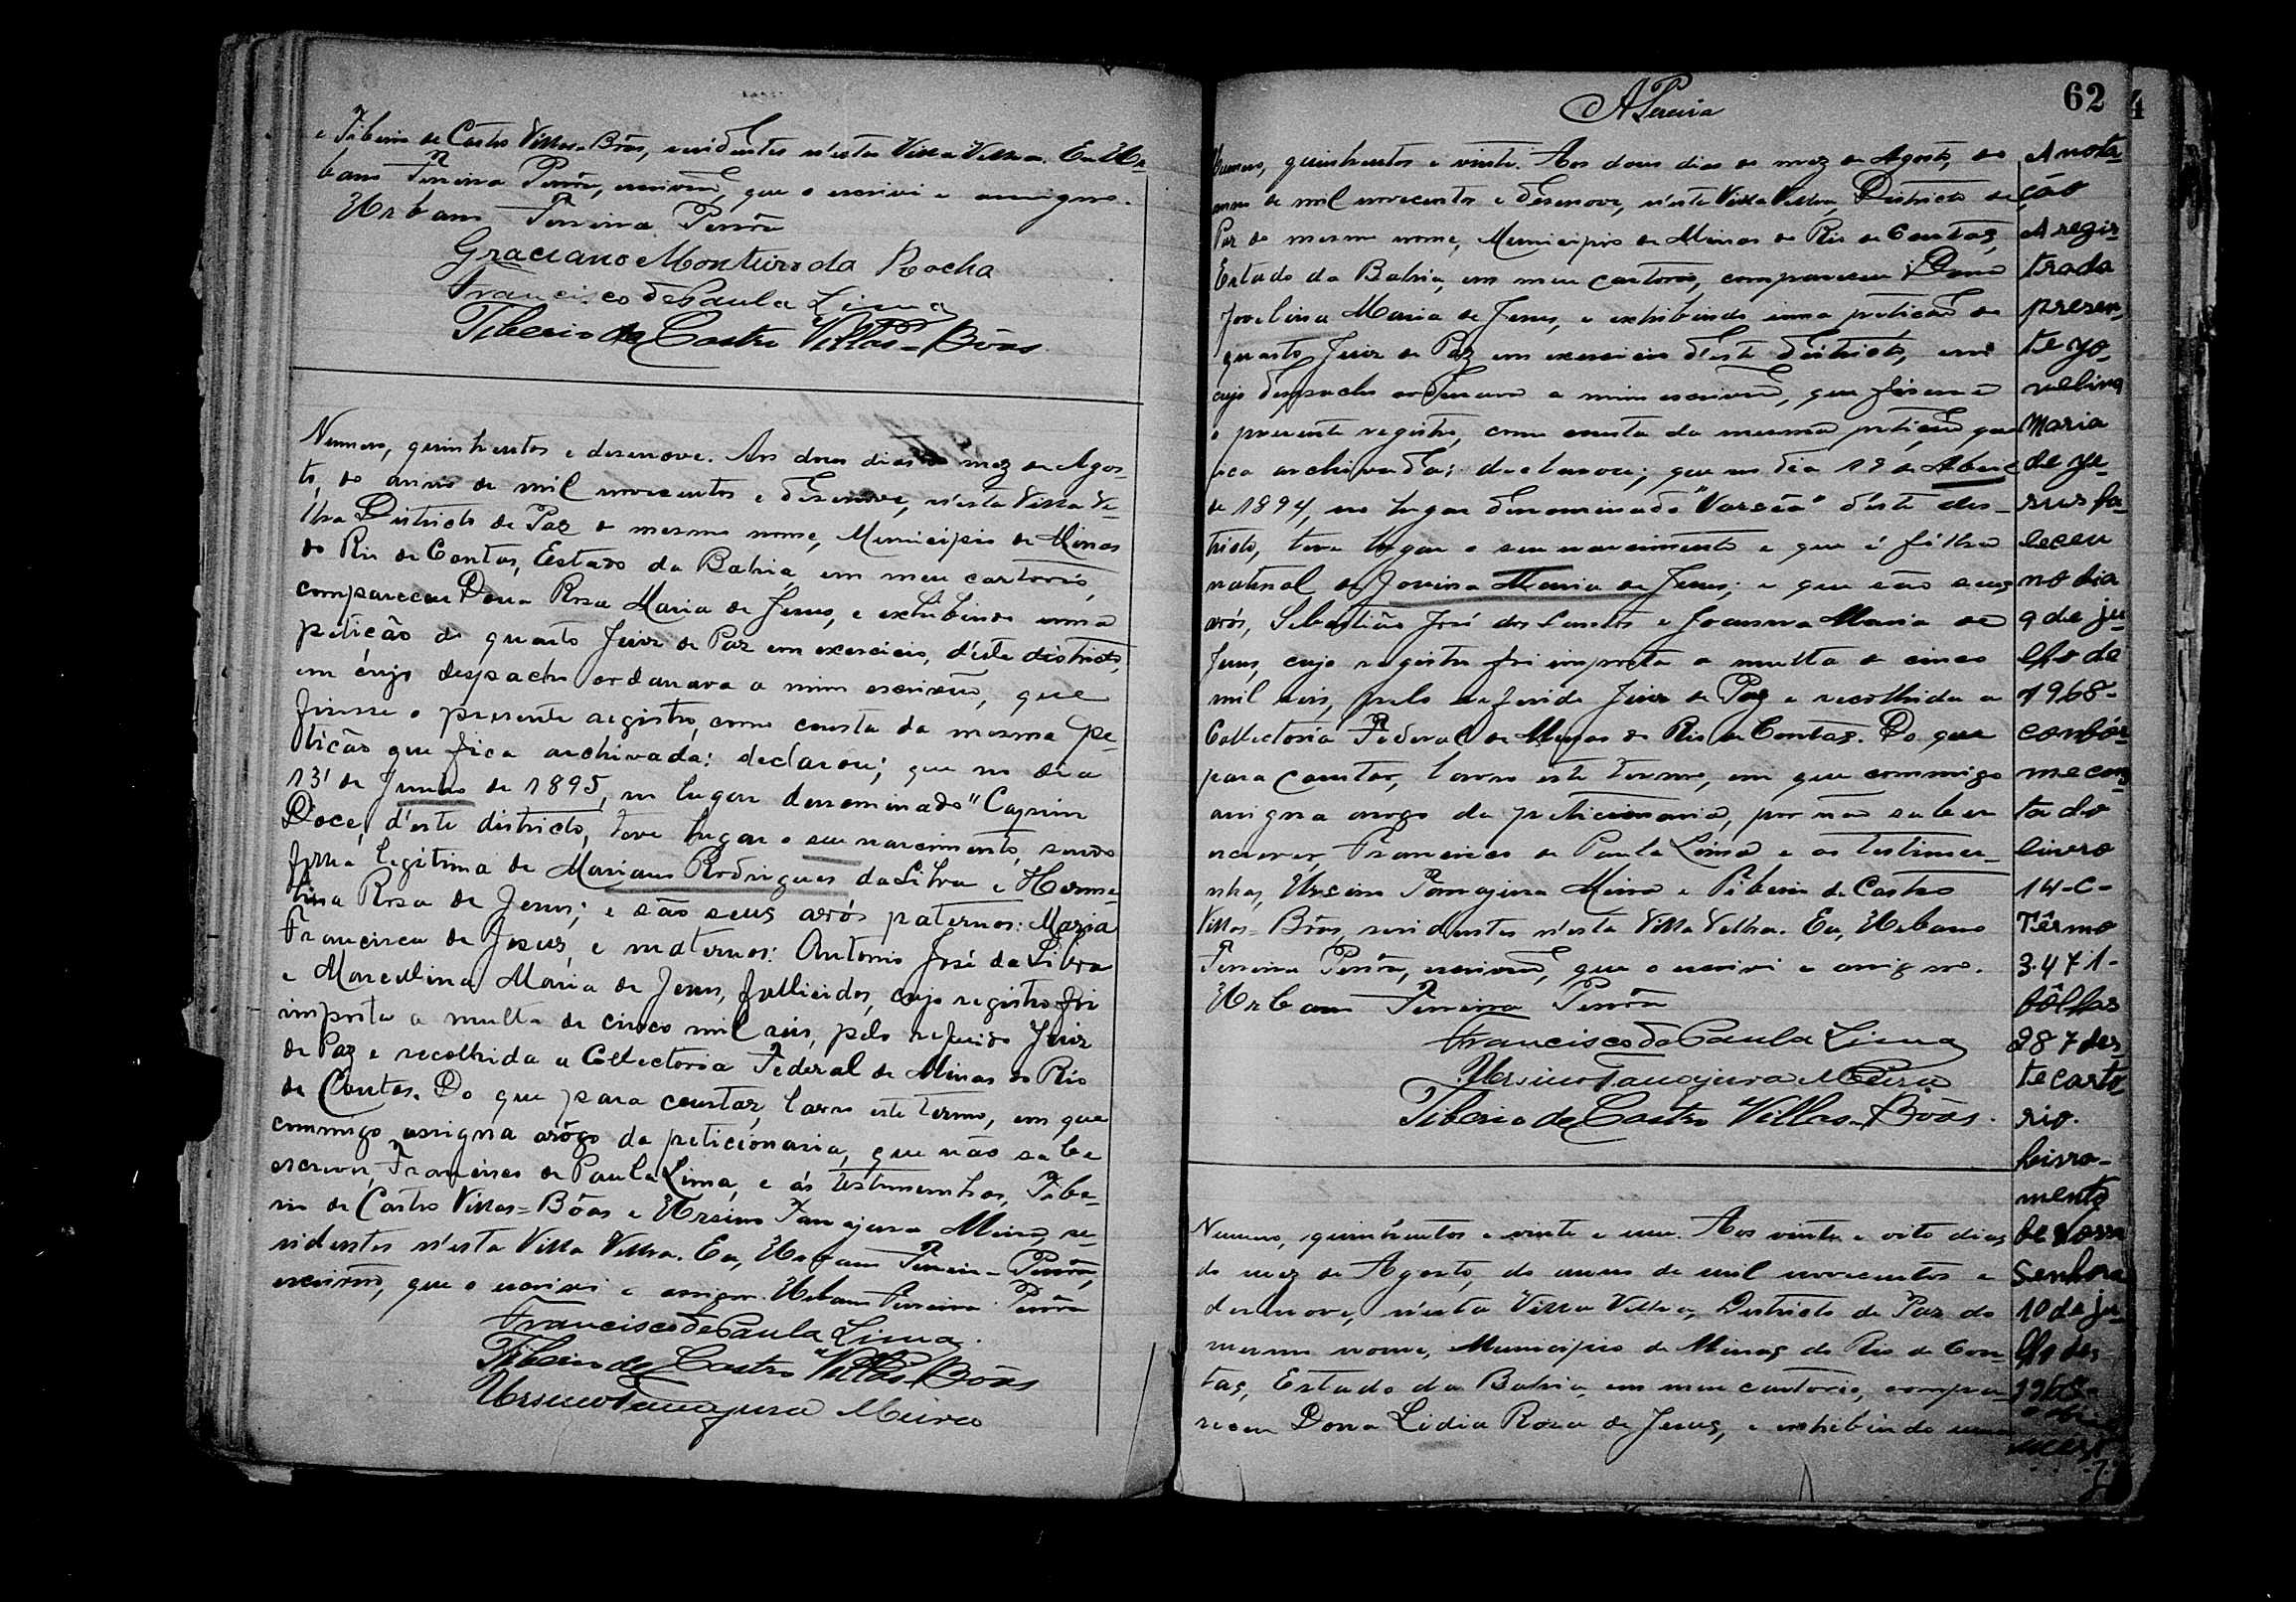 e Tiberio de Castro Villas-Bôas, residentes n'esta Villa Velha. Eu Ur-
bano Ferreira Pessôa, escrivão, que o escrivi e assigno.
Urbano Ferreira Pessôa
Graciano Monteiro da Rocha
Francisco de Paula Lima
Tiberio de Castro Villas-Bôas.
Numero, quinhentos e desenove. Aos dous dias do mez de Agos-
to, do anno de mil novecentos e desenove, n'esta Villa Ve-
lha Districto de Paz do mesmo nome, Municipio de Minas
do Rio de Contas, Estado da Bahia, em meu cartorio,
compareceu Dona Rosa Maria de Jesus, e exhibindo uma
petição do quarto Juiz de Paz em exercicio, d'este districto,
em cujo despacho ordenava a mim escrivão, que
fizesse o presente registro, como consta da mesma pe-
tição que fica archivada: declarou; que no dia
13 de Junho de 1895, no lugar denominado "Capim
Doce, d'este districto, teve lugar o seu nascimento, sendo
filha legitima de Mariano Rodrigues da Silva e Herme-
lina Rosa de Jesus; e são seus avós paternos: Maria
Francisca de Jesus, e maternos: Antonio José da Silva
e Marcellina Maria de Jesus, fallicidos, cujo registro foi
imposta a multa de cinco mil reis, pelo referido Juiz
de Paz e recolhida a Collectoria Federal de Minas do Rio
de Contas. Do que para constar, lavro este termo, em que
commigo assigna arôgo da peticionaria, que não sabe
escrever, Francisco de Paula Lima, e ás testimunhas, Tibe-
rio de Castro Villas=Bôas e Ursino Tanajura Meira, re-
sidentes n'esta Villa Velha. Eu, Urbano Ferreira Pessôa,
escrivão, que o escrivi e assigno. Urbano Ferreira Pessôa
Francisco de Paula Lima.
Tiberio de Castro Villas-Bôas
Ursino Tanajura Meira
62
4
Numero, quinhentos e vinte. Aos dous dias do mez de Agosto, do
anno de mil novecentos e desenove, n'esta Villa Velha, Districto de
Paz do mesmo nome, Municipio de Minas do Rio de Contas,
Estado da Bahia, em meu cartorio, compareceu Dona
Jovelina Maria de Jesus, e exhibindo uma petição do
quarto Juiz de Paz em exercicio d'este districto, em
cujo despacho ordenava a mim escrivão, que fizesse
o presente registro, como consta da mesma petição que
fica archivada: declarou; que no dia 19 de Abril
de 1894, no lugar denominado "Varzea" d'este des-
tricto, teve lugar o seu nascimento e que é filha
natural de Jovina Maria de Jesus; e que são seus
avós, Sebastião José dos Santos e Joanna Maria de
Jesus, cujo registro foi imposta a multa de cinco
mil reis, pelo referido Juiz de Paz e recolhida a
Collectoria Federal de Minas do Rio de Contas. Do que
para constar, lavro este termo, em que commigo
assigna arogo da peticionaria, por não saber
escrever, Francisco de Paula Lima e as testimu-
nhas, Ursino Tanajura Meira e Tiberio de Castro
Villas=Bôas, residentes n'esta Villa Velha. Eu, Urbano
Ferreira Pessôa, escrivão, que o escrivi e assigno.
Urbano Ferreira Pessôa
Francisco de Paula Lima
Ursino Tanajura Meira
Tiberio de Castro Villas-Bôas.
Numero, quinhentos e vinte e um. Aos vinte e oito dias
do mez de Agosto, do anno de mil novecentos e
desenove, n'esta Villa Velha, Districto de Paz do
mesmo nome, Municipio de Minas do Rio de Con-
tas, Estado da Bahia, em meu cartorio, compa-
receu Dona Lidia Rosa de Jesus, e exhibindo uma
Anota-
ção
A regis-
trada
presen-
te Jo-
velina
Maria
de Je-
sus fa-
leceu
no dia
9 de ju-
lho de
1968-
confór-
me cons-
ta do
livro
14-C-
Têrmo
3.471-
fôlhas
287 des-
te cartó-
rio.
Livra-
mento
de Nossa
Senhora
10 de ju-
lho de
1968-